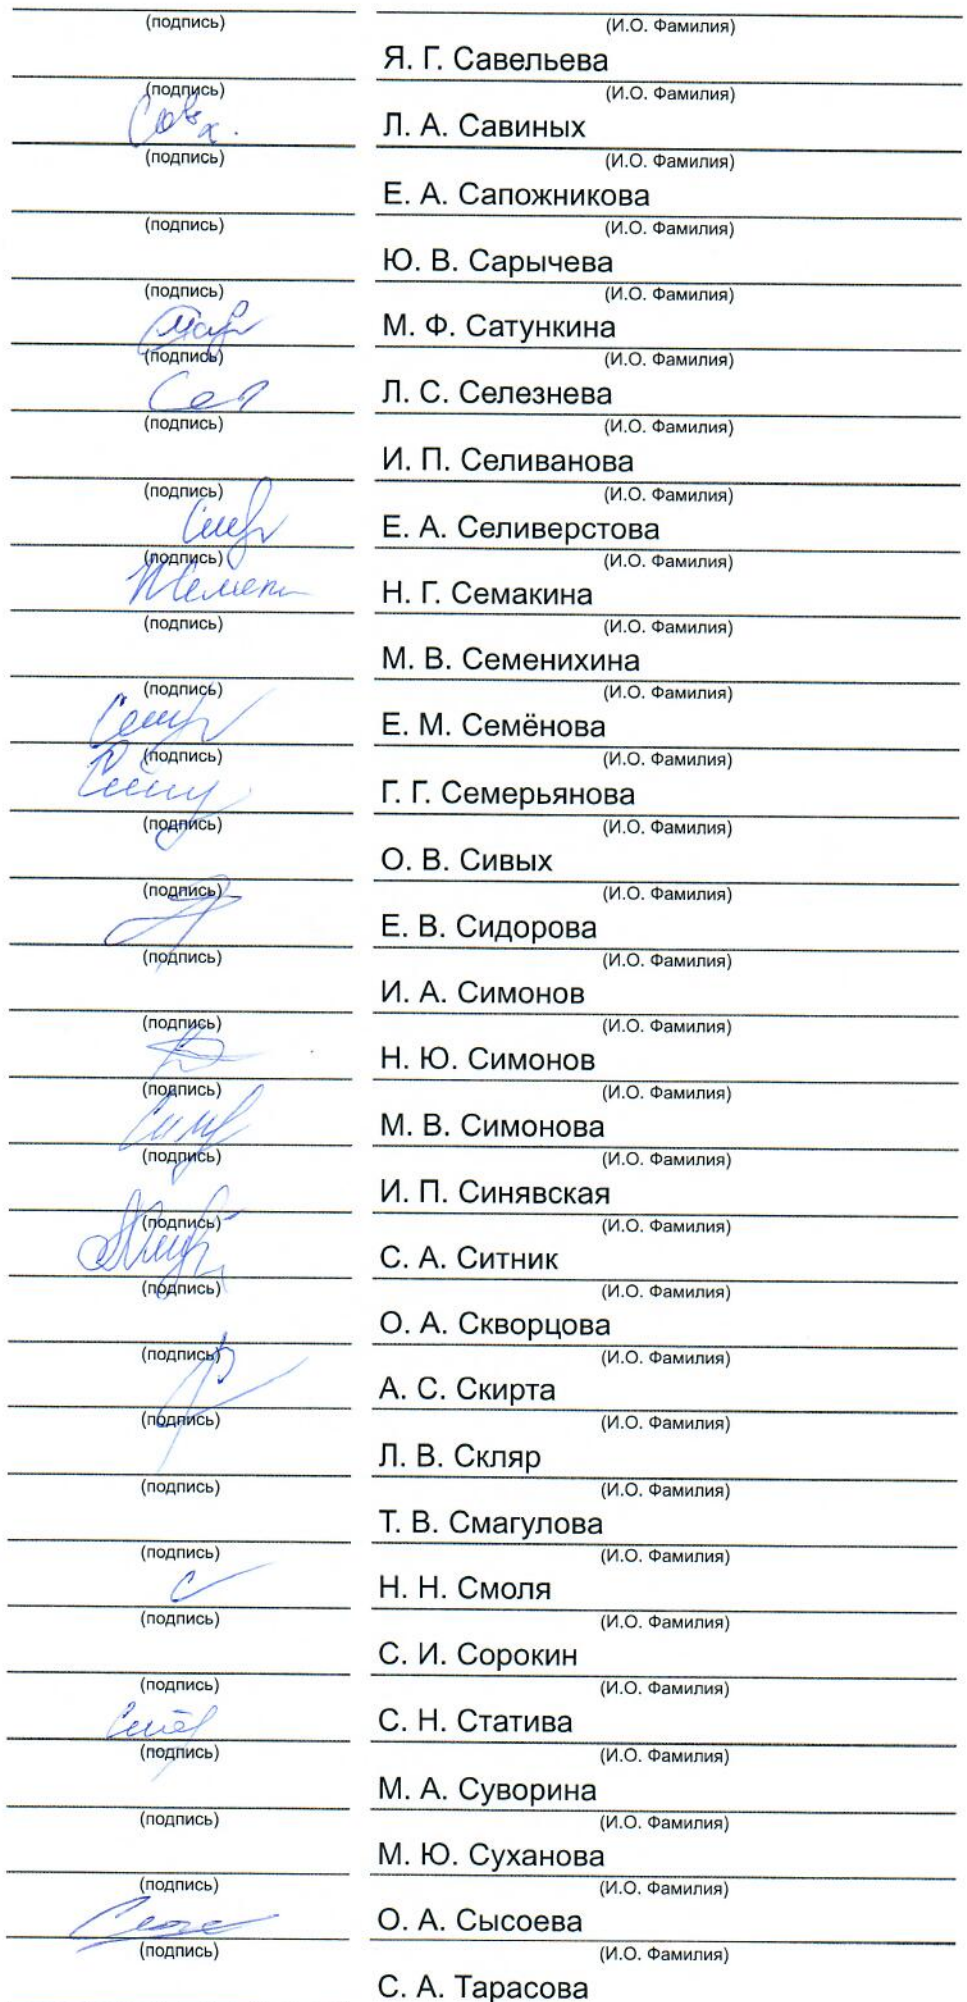 (подпись) (И.О. Фамилия)
Я. Г. Савельева
(подпись) (И.О. Фамилия)
Л. А. Савиных
(подпись) (И.О. Фамилия)
Е. А. Сапожникова
(подпись) (И.О. Фамилия)
Ю. В. Сарычева
(подпись) (И.О. Фамилия)
М. Ф. Сатункина
(подпись) (И.О. Фамилия)
Л. С. Селезнева
(подпись) (И.О. Фамилия)
И. П. Селиванова
(подпись) (И.О. Фамилия)
Е. А. Селиверстова
(подпись) (И.О. Фамилия)
Н. Г. Семакина
(подпись) (И.О. Фамилия)
М. В. Семенихина
(подпись) (И.О. Фамилия)
Е. М. Семёнова
(подпись) (И.О. Фамилия)
Г. Г. Семерьянова
(подпись) (И.О. Фамилия)
О. В. Сивых
(подпись) (И.О. Фамилия)
Е. В. Сидорова
(подпись) (И.О. Фамилия)
И. А. Симонов
(подпись) (И.О. Фамилия)
Н. Ю. Симонов
(подпись) (И.О. Фамилия)
М. В. Симонова
(подпись) (И.О. Фамилия)
И. П. Синявская
(подпись) (И.О. Фамилия)
С. А. Ситник
(подпись) (И.О. Фамилия)
О. А. Скворцова
(подпись) (И.О. Фамилия)
А. С. Скирта
(подпись) (И.О. Фамилия)
Л. В. Скляр
(подпись) (И.О. Фамилия)
Т. В. Смагулова
(подпись) (И.О. Фамилия)
Н. Н. Смоля
(подпись) (И.О. Фамилия)
С. И. Сорокин
(подпись) (И.О. Фамилия)
С. Н. Статива
(подпись) (И.О. Фамилия)
М. А. Суворина
(подпись) (И.О. Фамилия)
М. Ю. Суханова
(подпись) (И.О. Фамилия)
О. А. Сысоева
(подпись) (И.О. Фамилия)
С. А. Тарасова